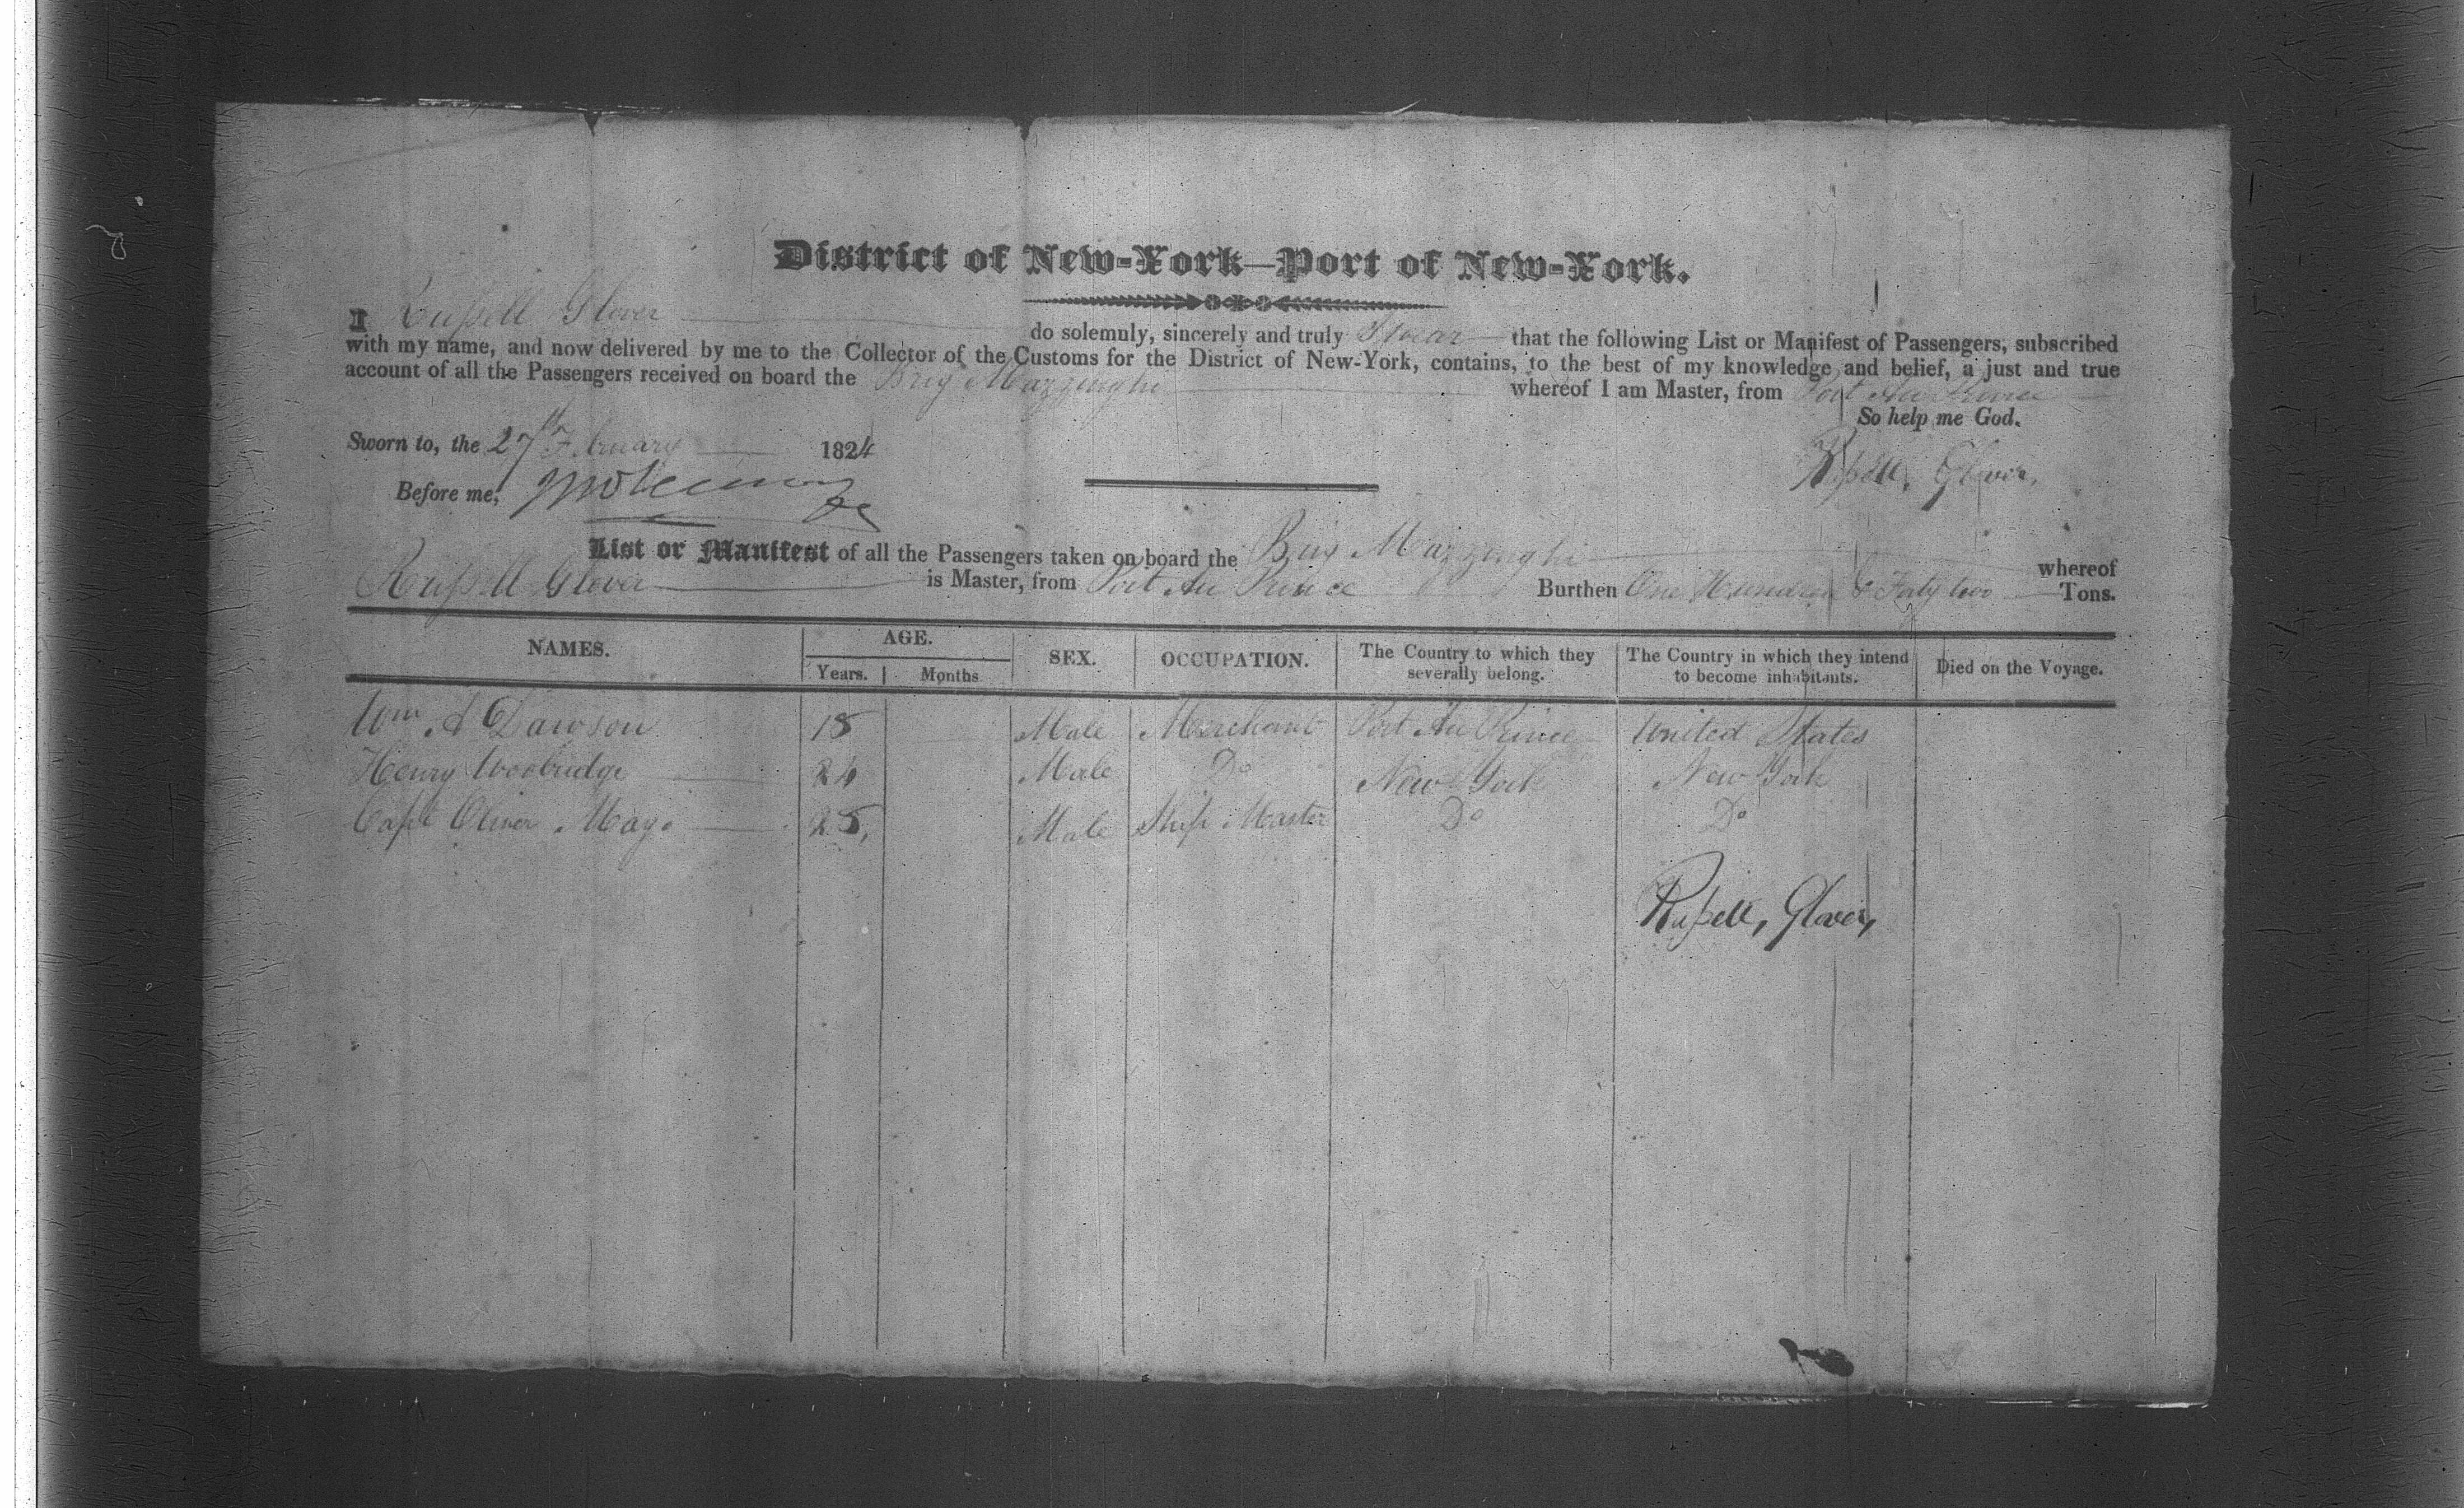 District of New-York—Port of New-York.
I Russell Glover do solemnly, sincerely and truly Swear that the following List or Manifest of Passengers, subscribed
with my name, and now delivered by me to the Collector of the Customs for the District of New-York, contains, to the best of my knowledge and belief, a just and true
account of all the Passengers received on board the Brig Mazzinghi whereof I am Master, from Port Au Prince
So help me God.
Sworn to, the 27th February 1824
Russell, Glover,
Before me,
List or Manifest of all the Passengers taken on board the Brig Mazzinghi whereof
Russell Glover is Master, from Port Au Prince Burthen One Hundred & Forty two Tons.
NAMES. AGE. SEX. OCCUPATION. The Country to which they severally belong. The Country in which they intend to become inhabitants. Died on the Voyage.
Years. Months
Wm A Dawson 18 Male Merchant Port Au Prince United States
Henry Woobridge 24 Male Do New York New York
Capt Oliver Mayo 28, Male Ship Master Do Do
Russell, Glover,